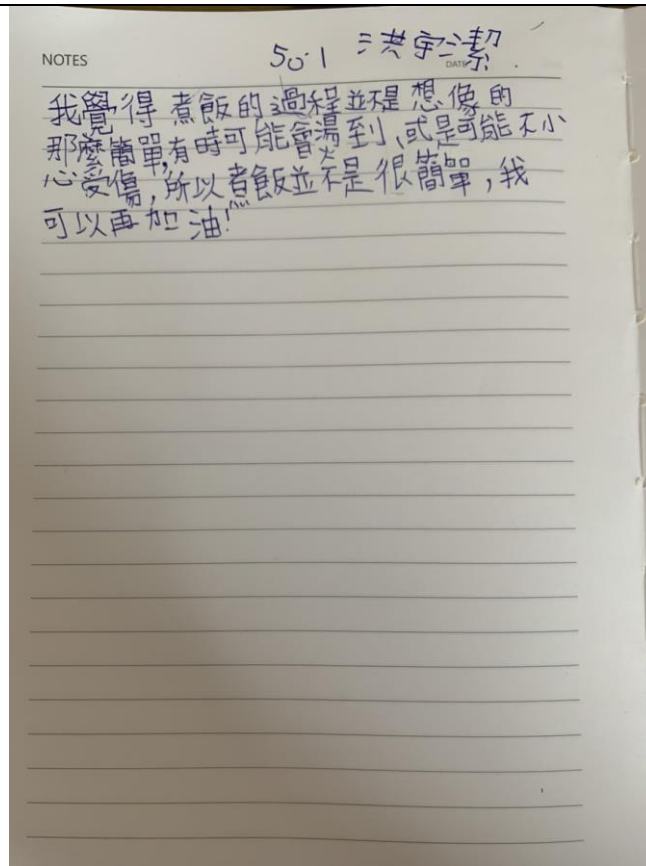 NOTES
501 洪宇潔
DATE
我覺得煮飯的過程並不是想像的
那麼簡單,有時可能會燙到、或是可能不小
心受傷,所以煮飯並不是很簡單,我
可以再加油!